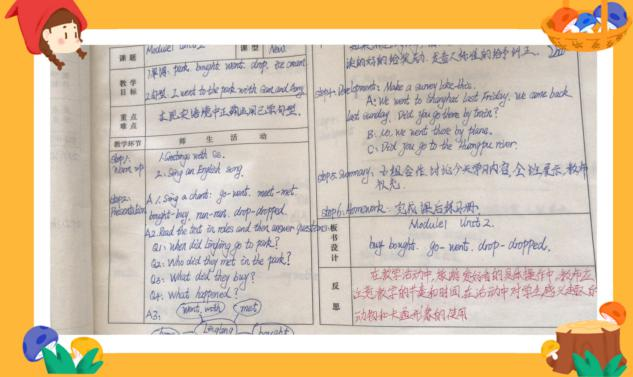 课题
Module1 Unit2
课型
New.
教学目标
1.单词: park. bought went. drop. ice cream
2.句型: I went to the park with Sam and Amy.
重点难点
教学环节
师生活动
Step1: Warm up
1.Greetings with Ss.
2. Sing an English song.
Step2: Presentation
A 1. Sing a chant: go-went. meet-met.
bought-buy, run-ran. drop-dropped.
A2. Read the text in roles and then answer questions
Q1: When did Lingling go to park?
Q2: Who did they meet in the park?
Q3: What did they buy?
Q4: What happened?
A3;
went with
met
Lingling
bought
Step4: Development: Make a survey like this.
A: We went to Shanghai last Friday. We came back
last Sunday. Did you go there by train?
B: No. we went there by plane.
C: Did you go to the Huangpu river.
Step5: Summary: 小组合作, 讨论今天学习内容, 全班展示, 教师
补充.
Step6: Homework: 完成课后练习册.
板书设计
Module1 Unit2.
buy bought. go-went. drop-dropped.
反思
在教学活动中,
的具体操作中, 教师应
注意教学的节奏和时间, 在活动中对学生感兴趣的
动物和卡通形象的使用